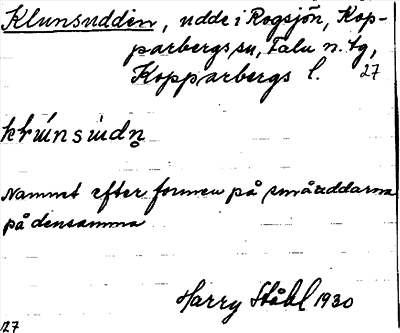 Klunsudden, udde i Rogsjön, Kop-
parbergs sn, Falu n. tg,
Kopparbergs l. 27
Namnet efter formen på småuddarna
på densamma
Harry Ståhl 1930
27